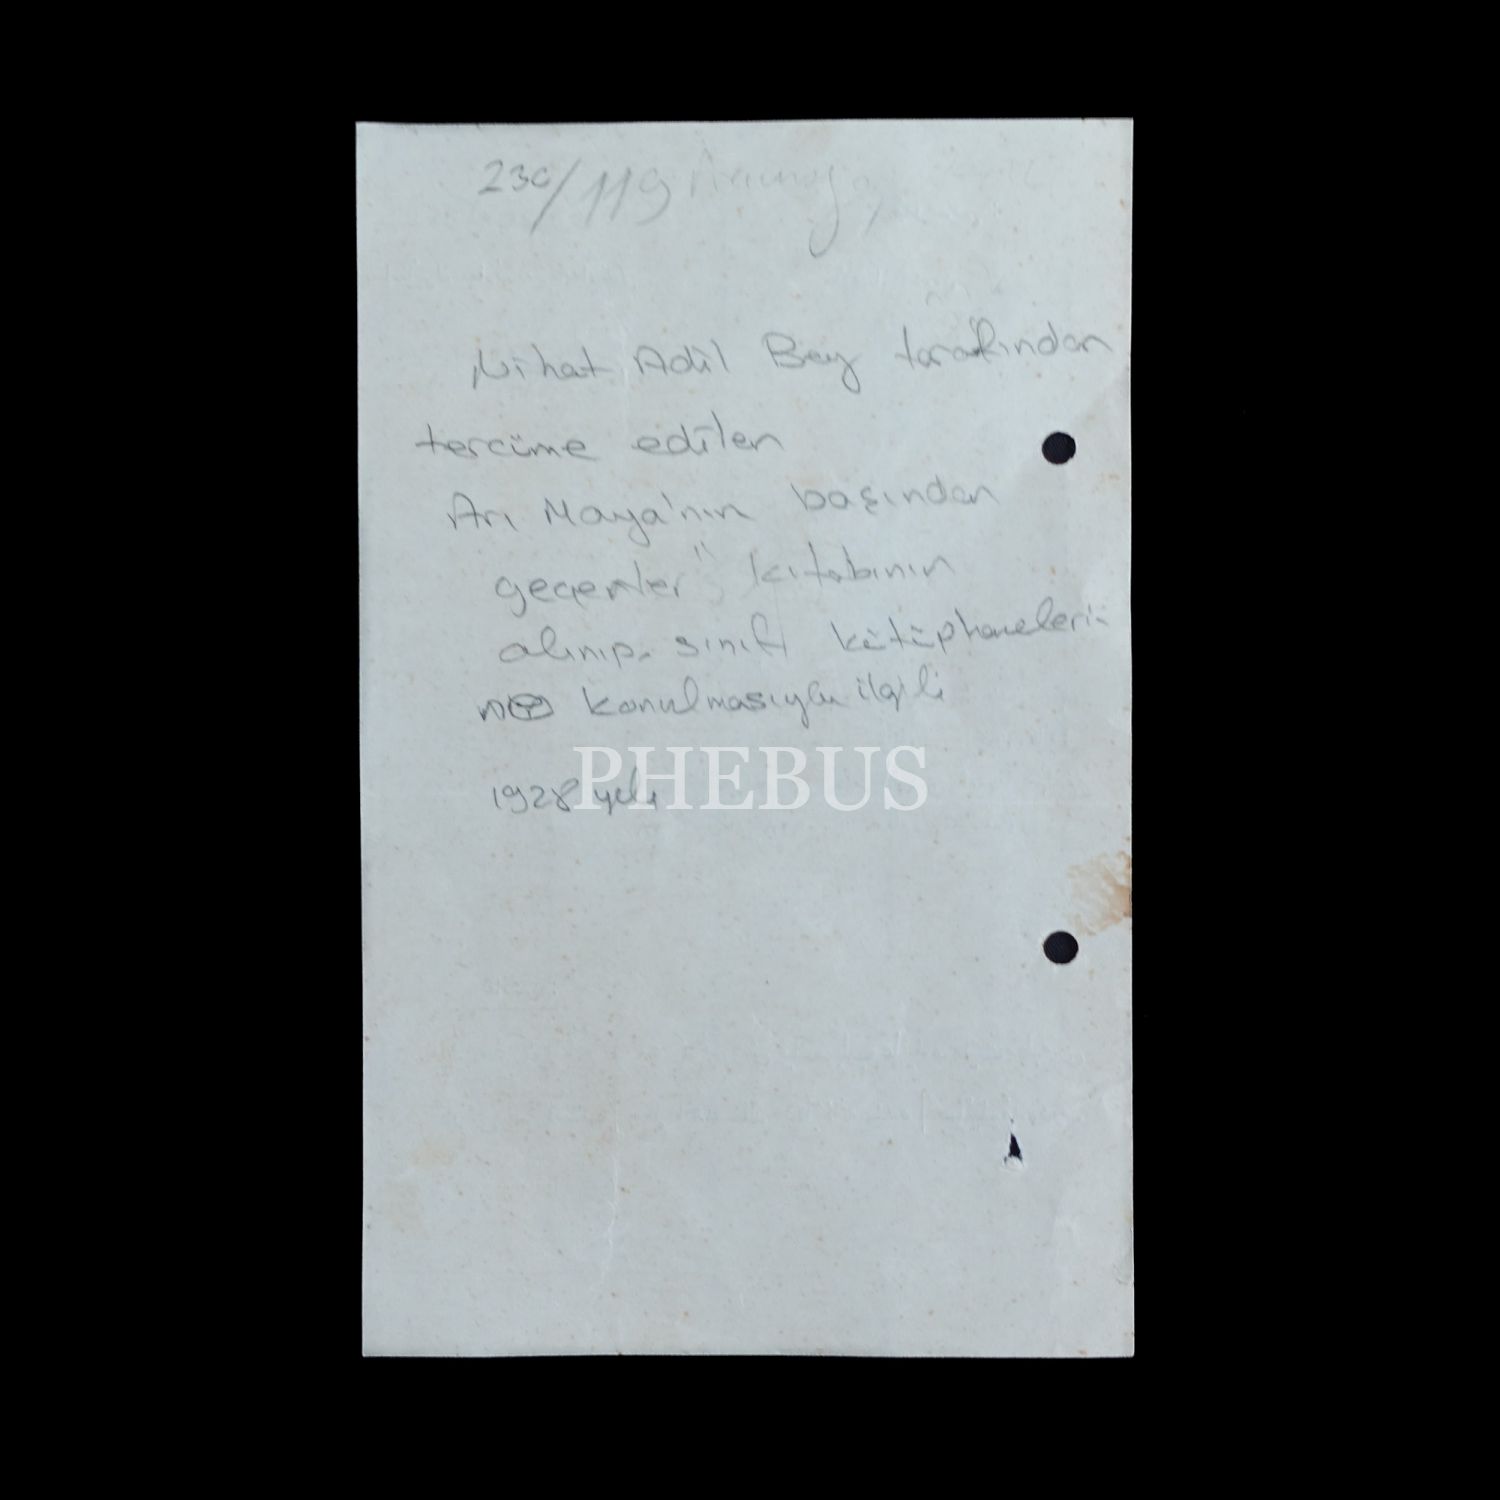 230/119
Nihat Adil Bey tarafından
tercüme edilen
Arı Maya'nın başından
geçenler" kitabının
alınıp sınıf kütüphaneleri
ne konulmasıyla ilgili
PHEBUS
1928 yılı